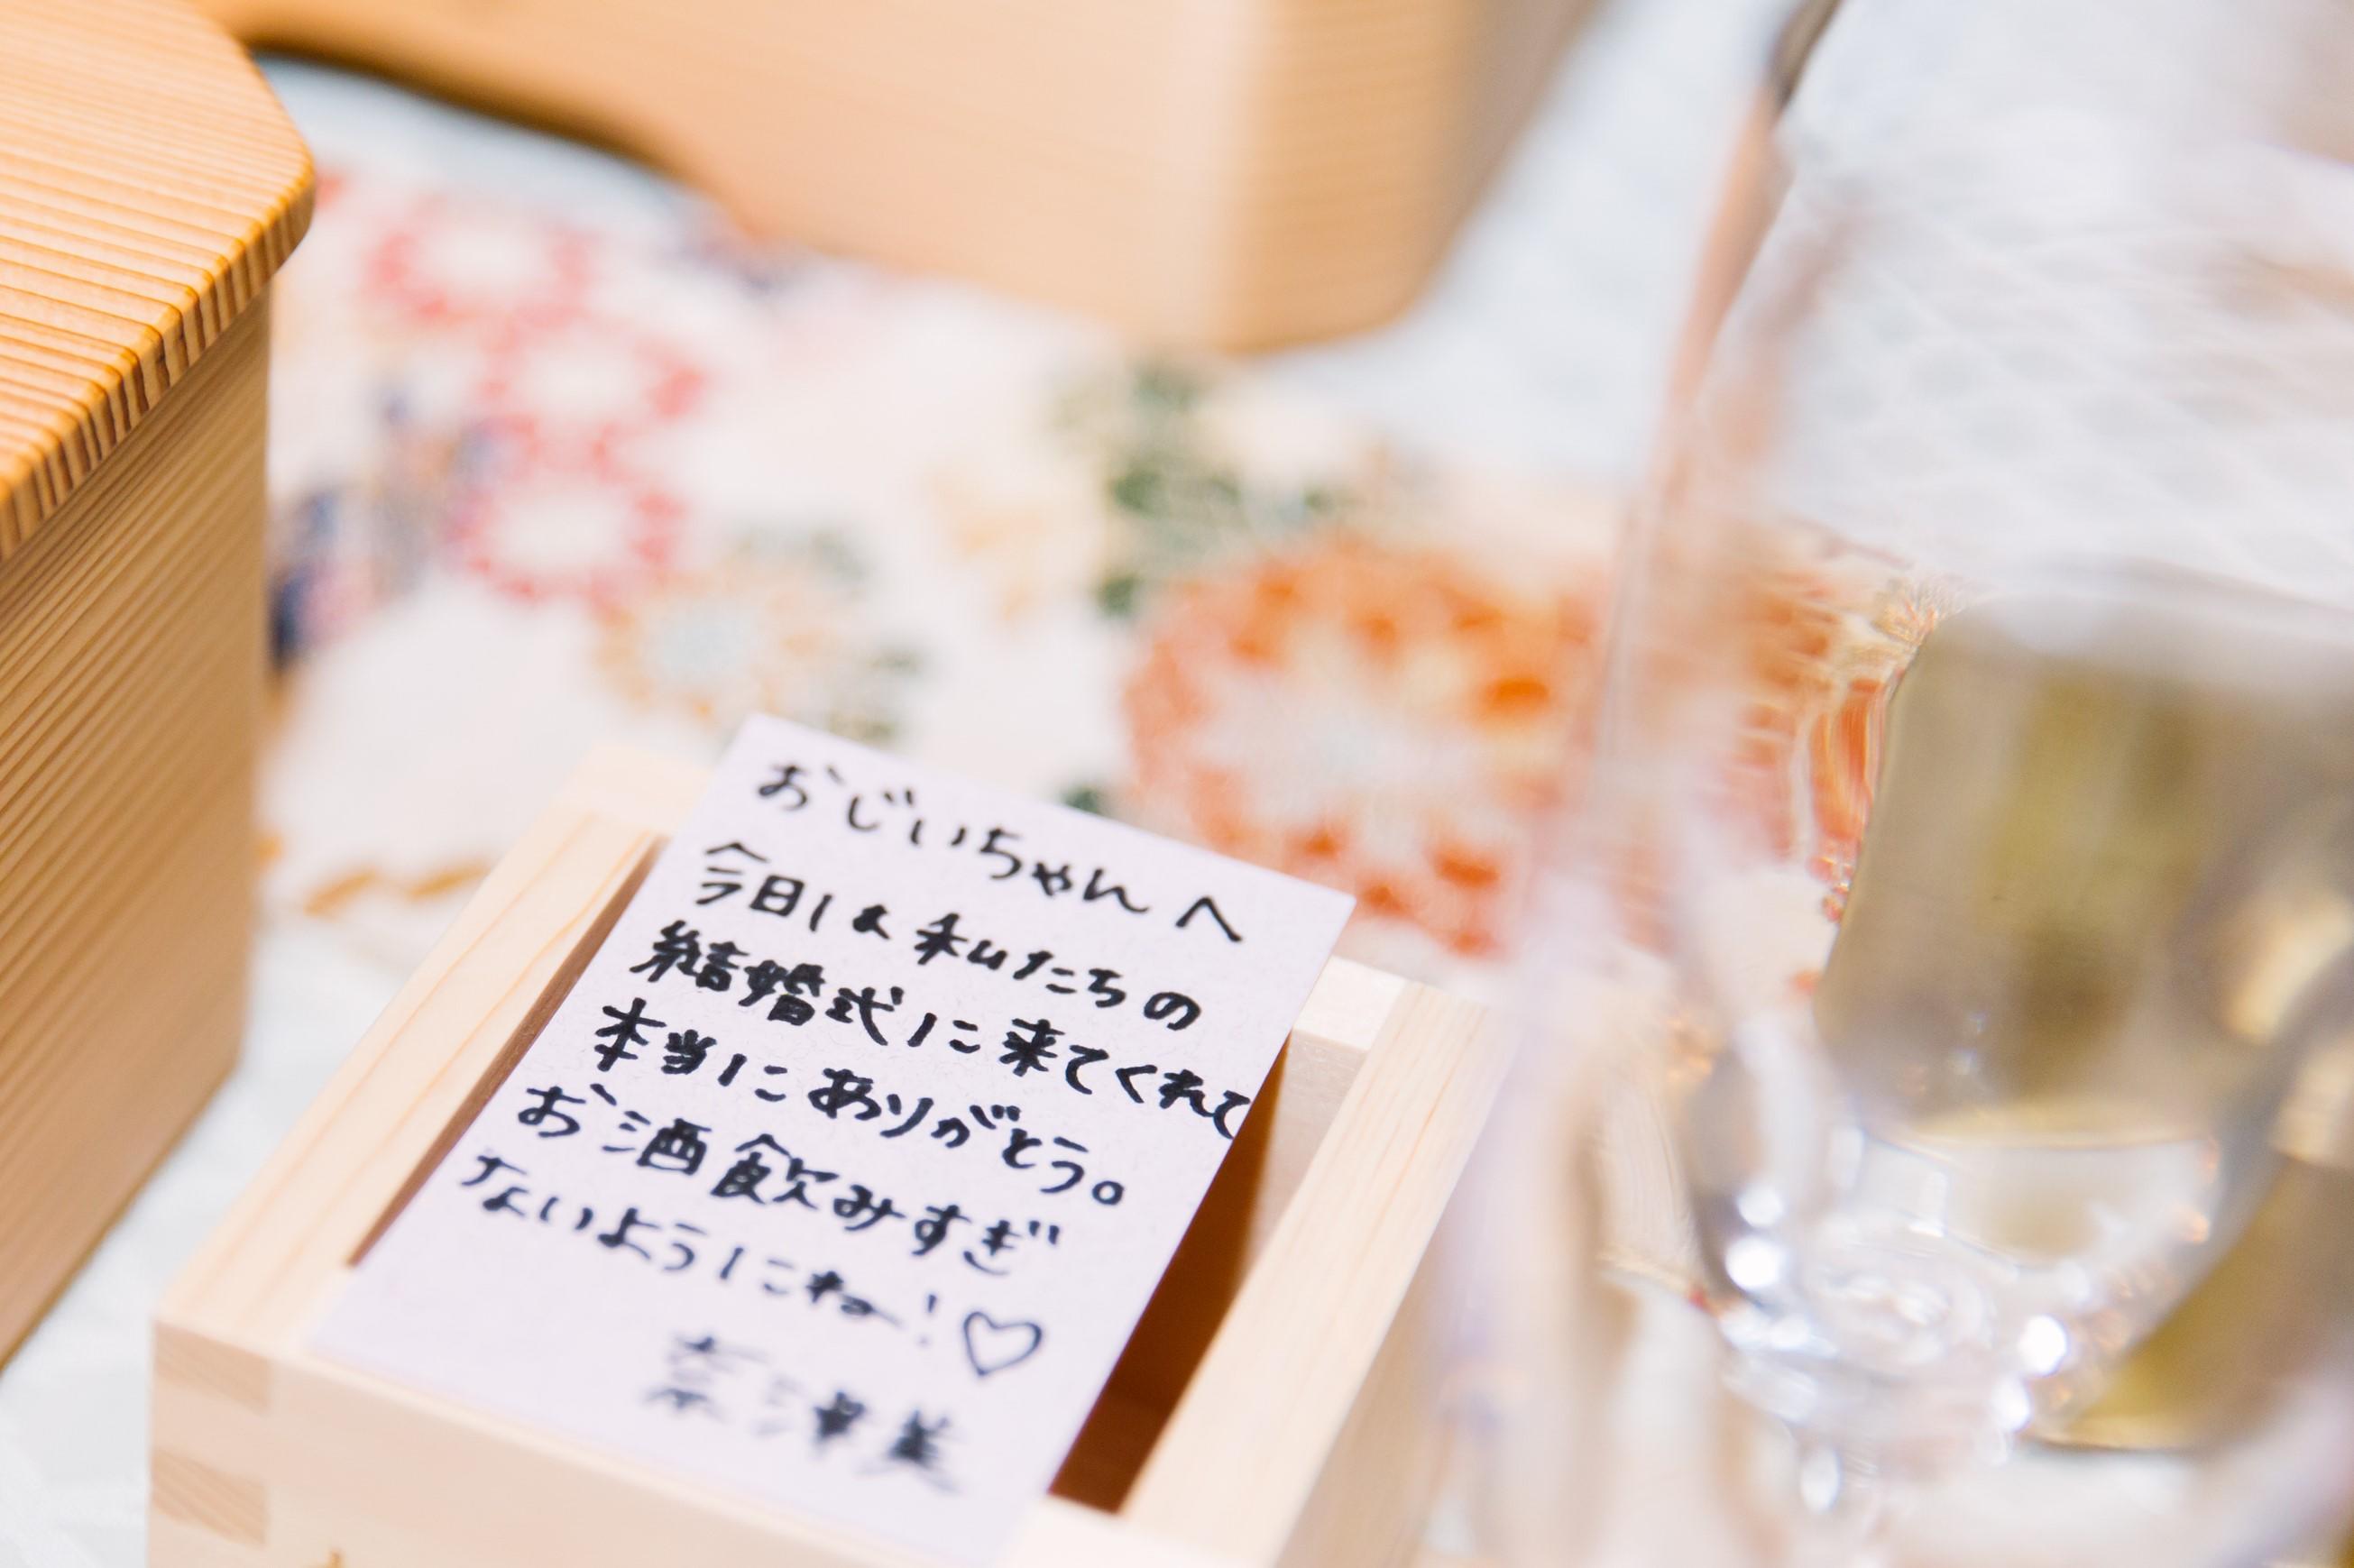 おじいちゃんへ
今日は私たちの
結婚式に来てくれて
本当にありがとう。
お酒飲みすぎ
ないようにねー!♡
奈津美